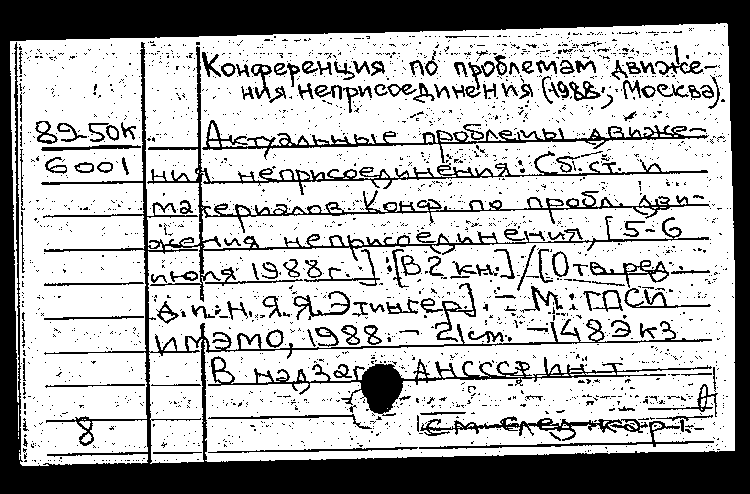 Конференция по проблемам движе-
ния неприсоединения (1988; Москва).
89-50к Актуальные проблемы движе-
6001 ния неприсоединения: Сб. ст. и
материалов Конф. по пробл. дви-
жения неприсоединения, [5-6
июля 1988г.]: [В 2 кн.] / [Отв. ред.
д.и.н. Я.Я. Этингер]. – М.: ГПСИ
ИМЭМО, 1988. – 21 см. – 148 экз.
В надзаг. АН СССР, Ин-т
8 см след карт.